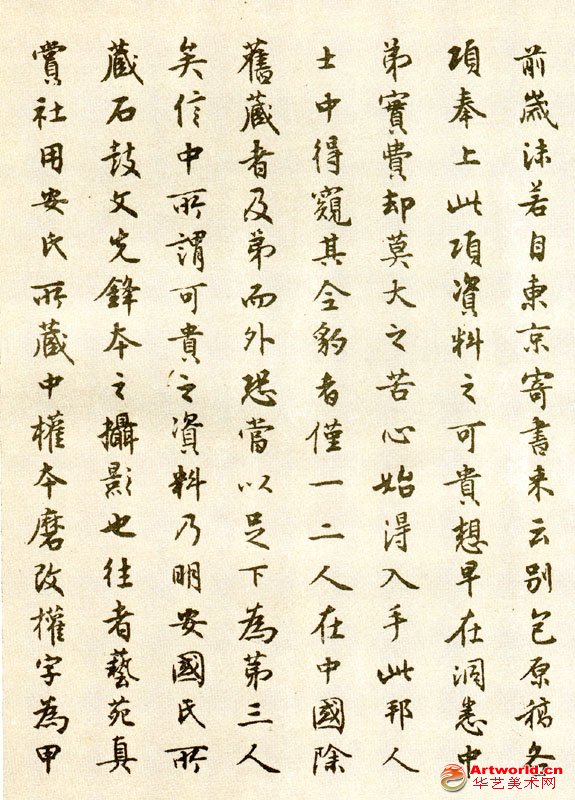 前歲沫若自東京寄書来云别包原稿各
項奉上此項資料之可貴想早在洞悉中
弟實費却莫大之苦心始得入手此邦人
士中得窺其全豹者僅一二人在中國除
舊藏者及弟而外恐當以足下為第三人
矣信中所謂可貴之資料乃明安國氏所
藏石鼓文先鋒本之攝影也往者藝苑真
賞社用安氏所藏中權本磨改權字為甲
Artworld.cn
华艺美术网